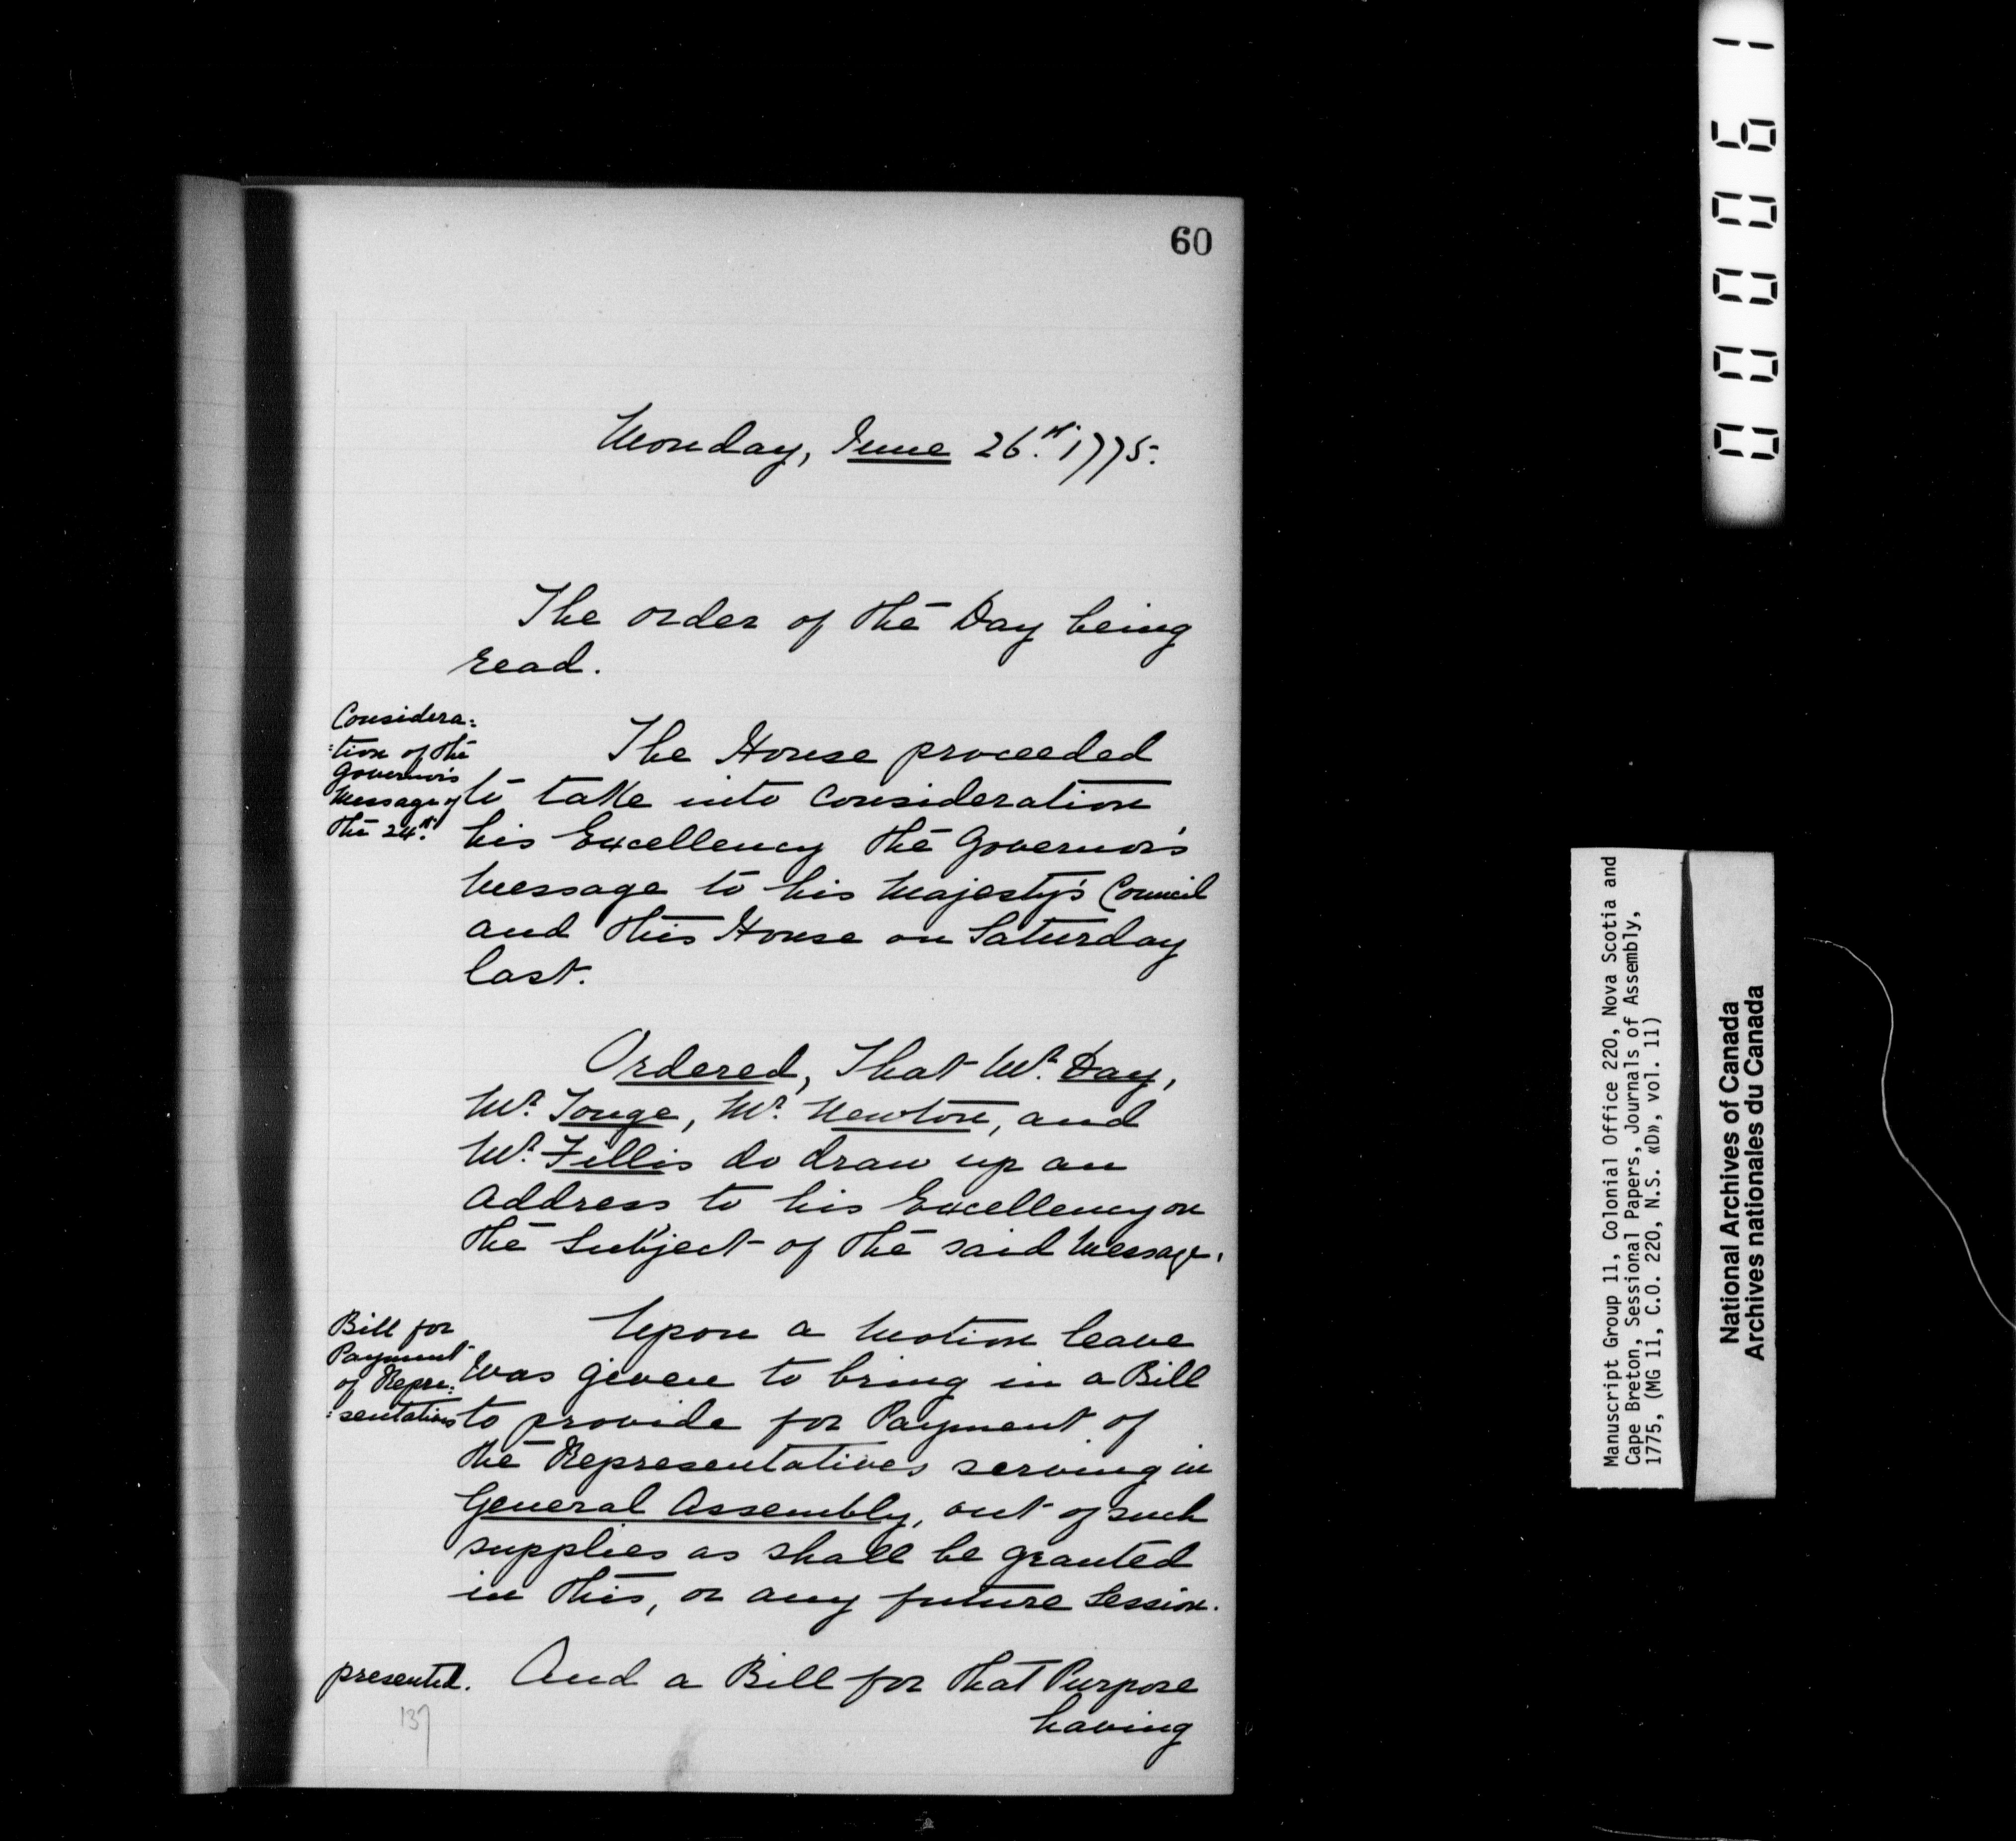 60
Monday, June 26th 1775.
The order of the Day being
read.
Considera=
=tion of the
Governor's
Message of
the 24th.
The House proceeded
to take into consideration
his Excellency the Governor's
Message to his Majesty's Council
and this House on Saturday
last.
Ordered, That Mr. Day,
Mr. Tonge, Mr. Newton, and
Mr. Fillis do draw up an
Address to his Excellency on
the Subject of the said Message.
Bill for
Payment
of Repre=
=sentatives
Upon a Motion leave
was given to bring in a Bill
to provide for Payment of
the Representatives serving in
General Assembly, out of such
supplies as shall be granted
in this, or any future Session.
presented.
And a Bill for that Purpose
having
137
000061
Manuscript Group 11, Colonial Office 220, Nova Scotia and
Cape Breton, Sessional Papers, Journals of Assembly,
1775, (MG 11, C.O. 220, N.S. «D», vol. 11)
National Archives of Canada
Archives nationales du Canada